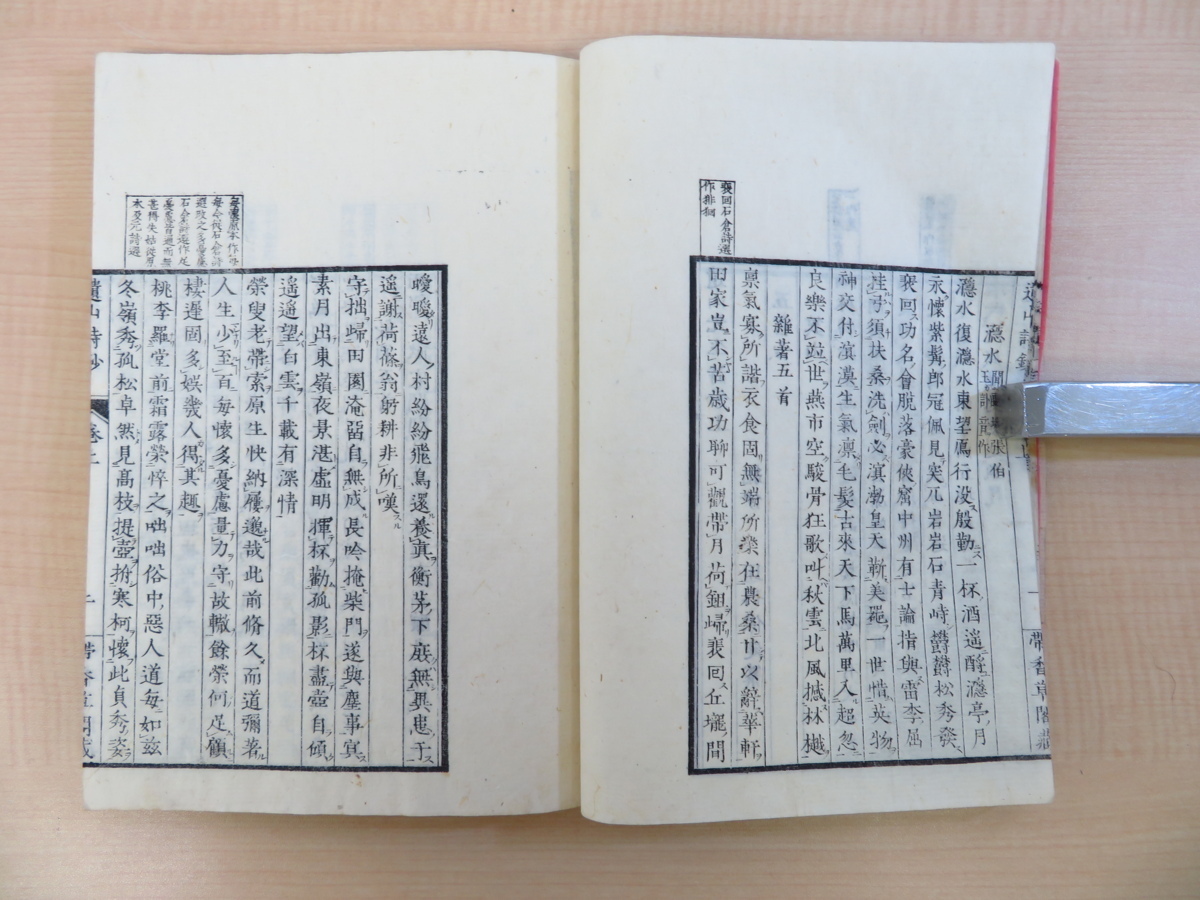 裵回石倉詩選
作徘徊
濦水
張伯
玉
作
濦水復濦水東望鴈行没殷勤一杯酒遥酹濦亭月
永懷紫髯郎冠佩見突兀岩岩石青峙欝欝松秀發
裵回功名會脱落豪俠窟中州有士論指與雷李屈
挂弓須扶桑洗劍必滇渤皇天靳美罷一世惜英物
神交付滇漠生氣凛毛髮古來天下馬萬里入超忽
良樂不並世燕市空駿骨狂歌叫秋雲北風撼林樾
雜著五首
禀氣寡所諧衣食固無端所樂在農桑甘以辭華軒
田家豈不苦歳功聊可觀帶月荷鉏歸裵回丘壠間
曖曖遠人村紛紛飛鳥還養真衡茅下庶無異患干
遥謝荷蓧翁躬耕非所嘆
守拙歸田園淹畱自無成長吟掩柴門遂與塵事冥
素月出東嶺夜景湛虚明揮杯勸孤影杯盡壺自傾
遥遥望白雲千載有深情
榮叟老帶索原生快納屨邈哉此前修久而道彌著
人生少至百每懷多憂慮量力守故轍餘榮何足顧
棲遲固多娯幾人得其趣
桃李羅堂前霜露榮悴之咄咄俗中惡人道每如兹
冬嶺秀孤松卓然見髙枝提壺拊寒柯懷此貞秀姿
遺山詩鈔 卷上